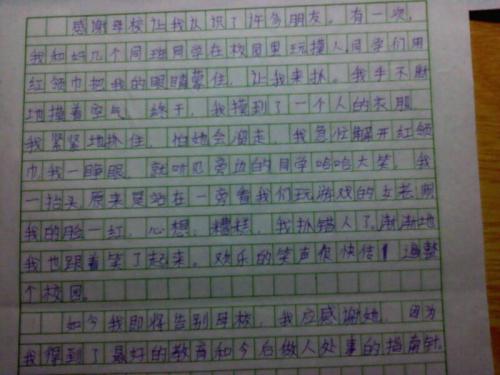 感谢母校让我认识了许多朋友。有一次,
我和好几个同班同学在校园里玩摸人同学们用
红领巾把我的眼睛蒙住,让我来扒。我手不断
地摸着空气。终于,我摸到了一个人的衣服,
我紧紧地抓住,怕她会溜走,我急忙解开红领
巾我一睁眼,就听见旁边的同学哈哈大笑,我
一抬头原来是站在一旁看我们玩游戏的女老师
我的脸一红,心想,糟糕,我扒错人了。渐渐地
我也跟着笑了起来。欢乐的笑声很快传遍整
个校园。
如今我即将告别母校,我应感谢她,因为
我得到了最好的教育和今后做人处事的指南针